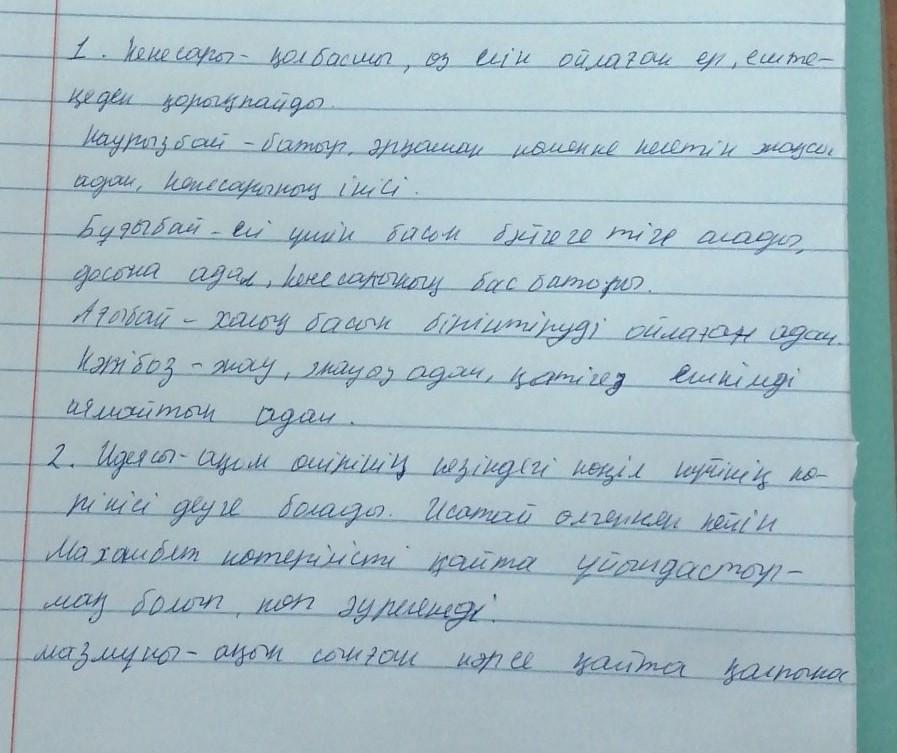 1. Кенесары - қолбасшы, өз елін ойлаған ер, еште-
ңеден қорықпайды.
Наурызбай - батыр, әрқашан көмекке келетін жақсы
адам, Кенесарының інісі.
Бұғыбай - елі үшін басын бәйгеге тіге алады,
досына адал, Кенесарының бас батыры.
Ағыбай - халық басын біріктіруді ойлаған адам.
Кәжібоз - жау, жауыз адам, қатігез ешкімді
аямайтын адам.
2. Идеясы - ақын өмірінің кезіндегі көңіл күйінің кө-
рінісі деуге болады. Исатай өлгеннен кейін
Махамбет көтерілісті қайта ұйымдастыр-
мақ болып, көп әуреленеді.
мазмұны - ақын сынған нәрсе қайта қалпына